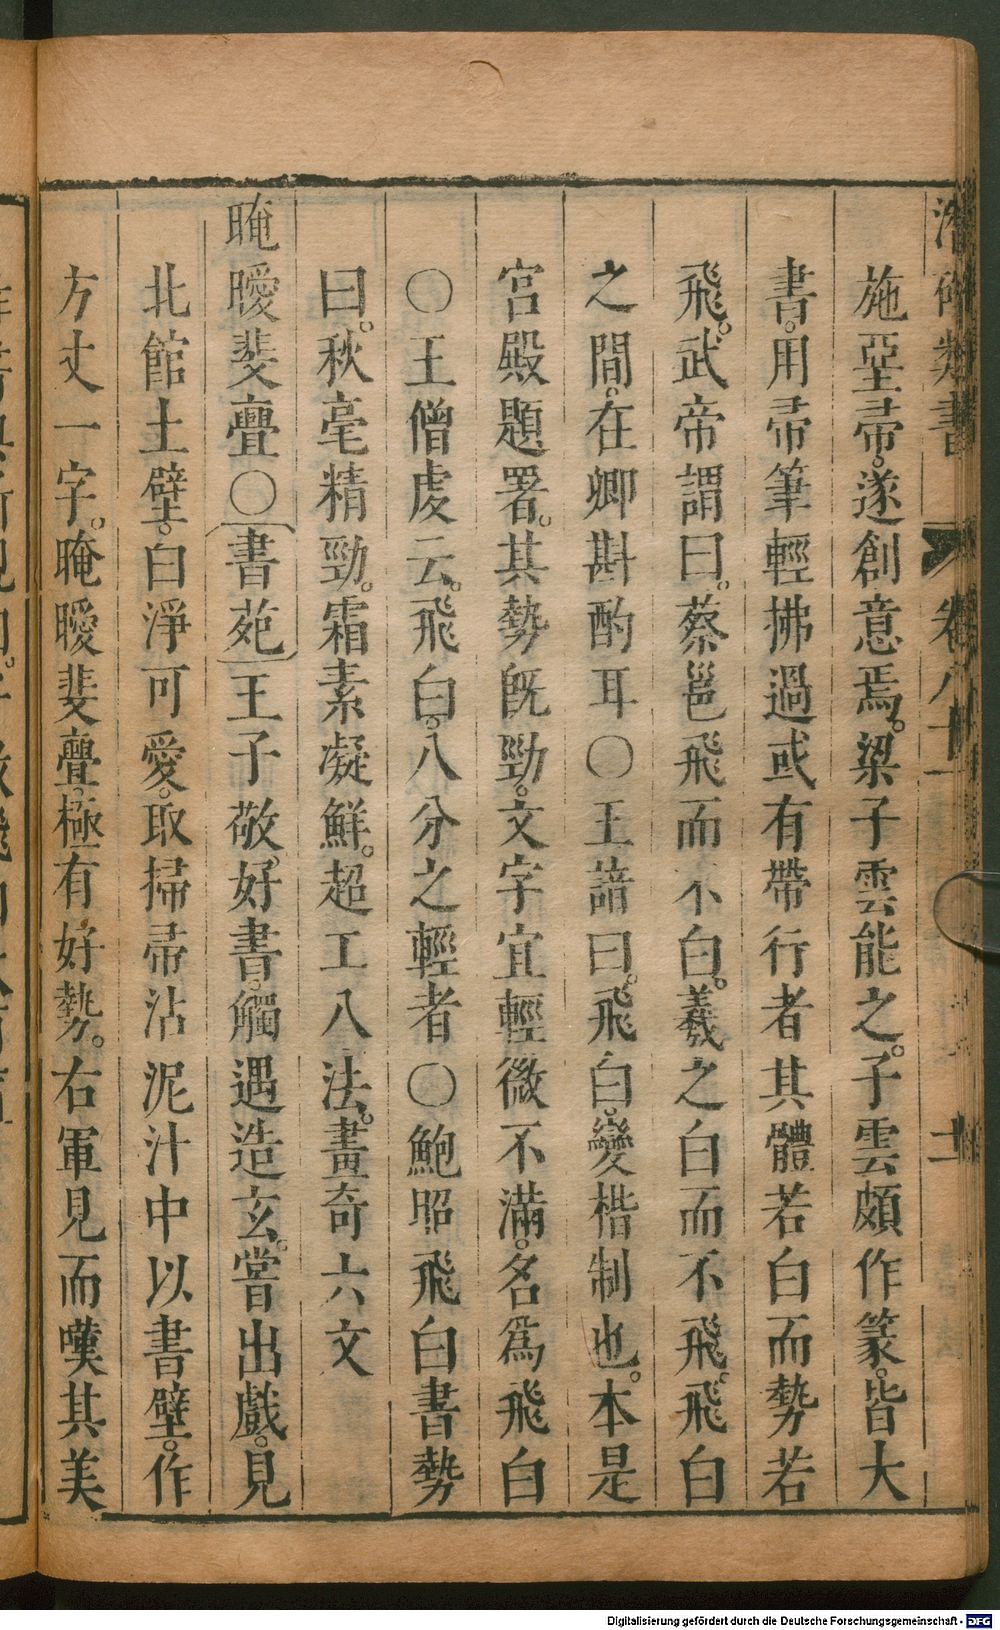 潛確類書 卷八十二
施堊帚。遂創意焉。梁子雲能之。子雲頗作篆。皆大
書。用帚筆輕拂過或有帶行者其體若白而勢若
飛。武帝謂曰。蔡邕飛而不白。羲之白而不飛。飛白
之間。在卿斟酌耳〇王諳曰。飛白。變楷制也。本是
宮殿題署。其勢旣勁。文字宜輕微不滿。名爲飛白
〇王僧虔云。飛白。八分之輕者〇鮑照飛白書勢
曰。秋毫精勁。霜素凝鮮。超工八法。畫奇六文
晻曖斐亹〇書苑王子敬。好書。觸遇造玄。嘗出戲。見
北館土壁。白淨可愛。取掃帚沾泥汁中以書壁。作
方丈一字。晻曖斐亹。極有好勢。右軍見而嘆其美
Digitalisierung gefördert durch die Deutsche Forschungsgemeinschaft - DFG